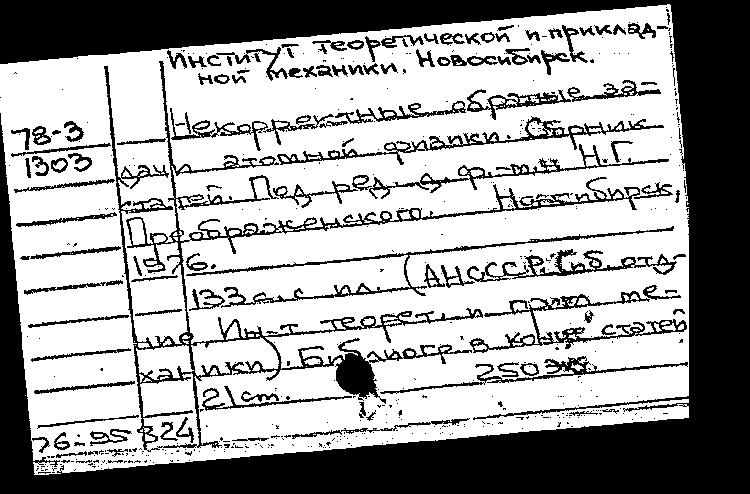 Институт теоретической и приклад-
ной механики. Новосибирск.
78-3
1303
Некорректные обратные за-
дачи атомной физики. Сборник
статей. Под ред. д. ф.-м.н Н.Г.
Преображенского. Новосибирск,
1976.
133 с. с ил. (АНСССР. Сиб. отд-
ние, Ин-т теорет. и прикл ме-
ханики). Библиогр. в конце статей
250 экз.
21 cm.
76-95324